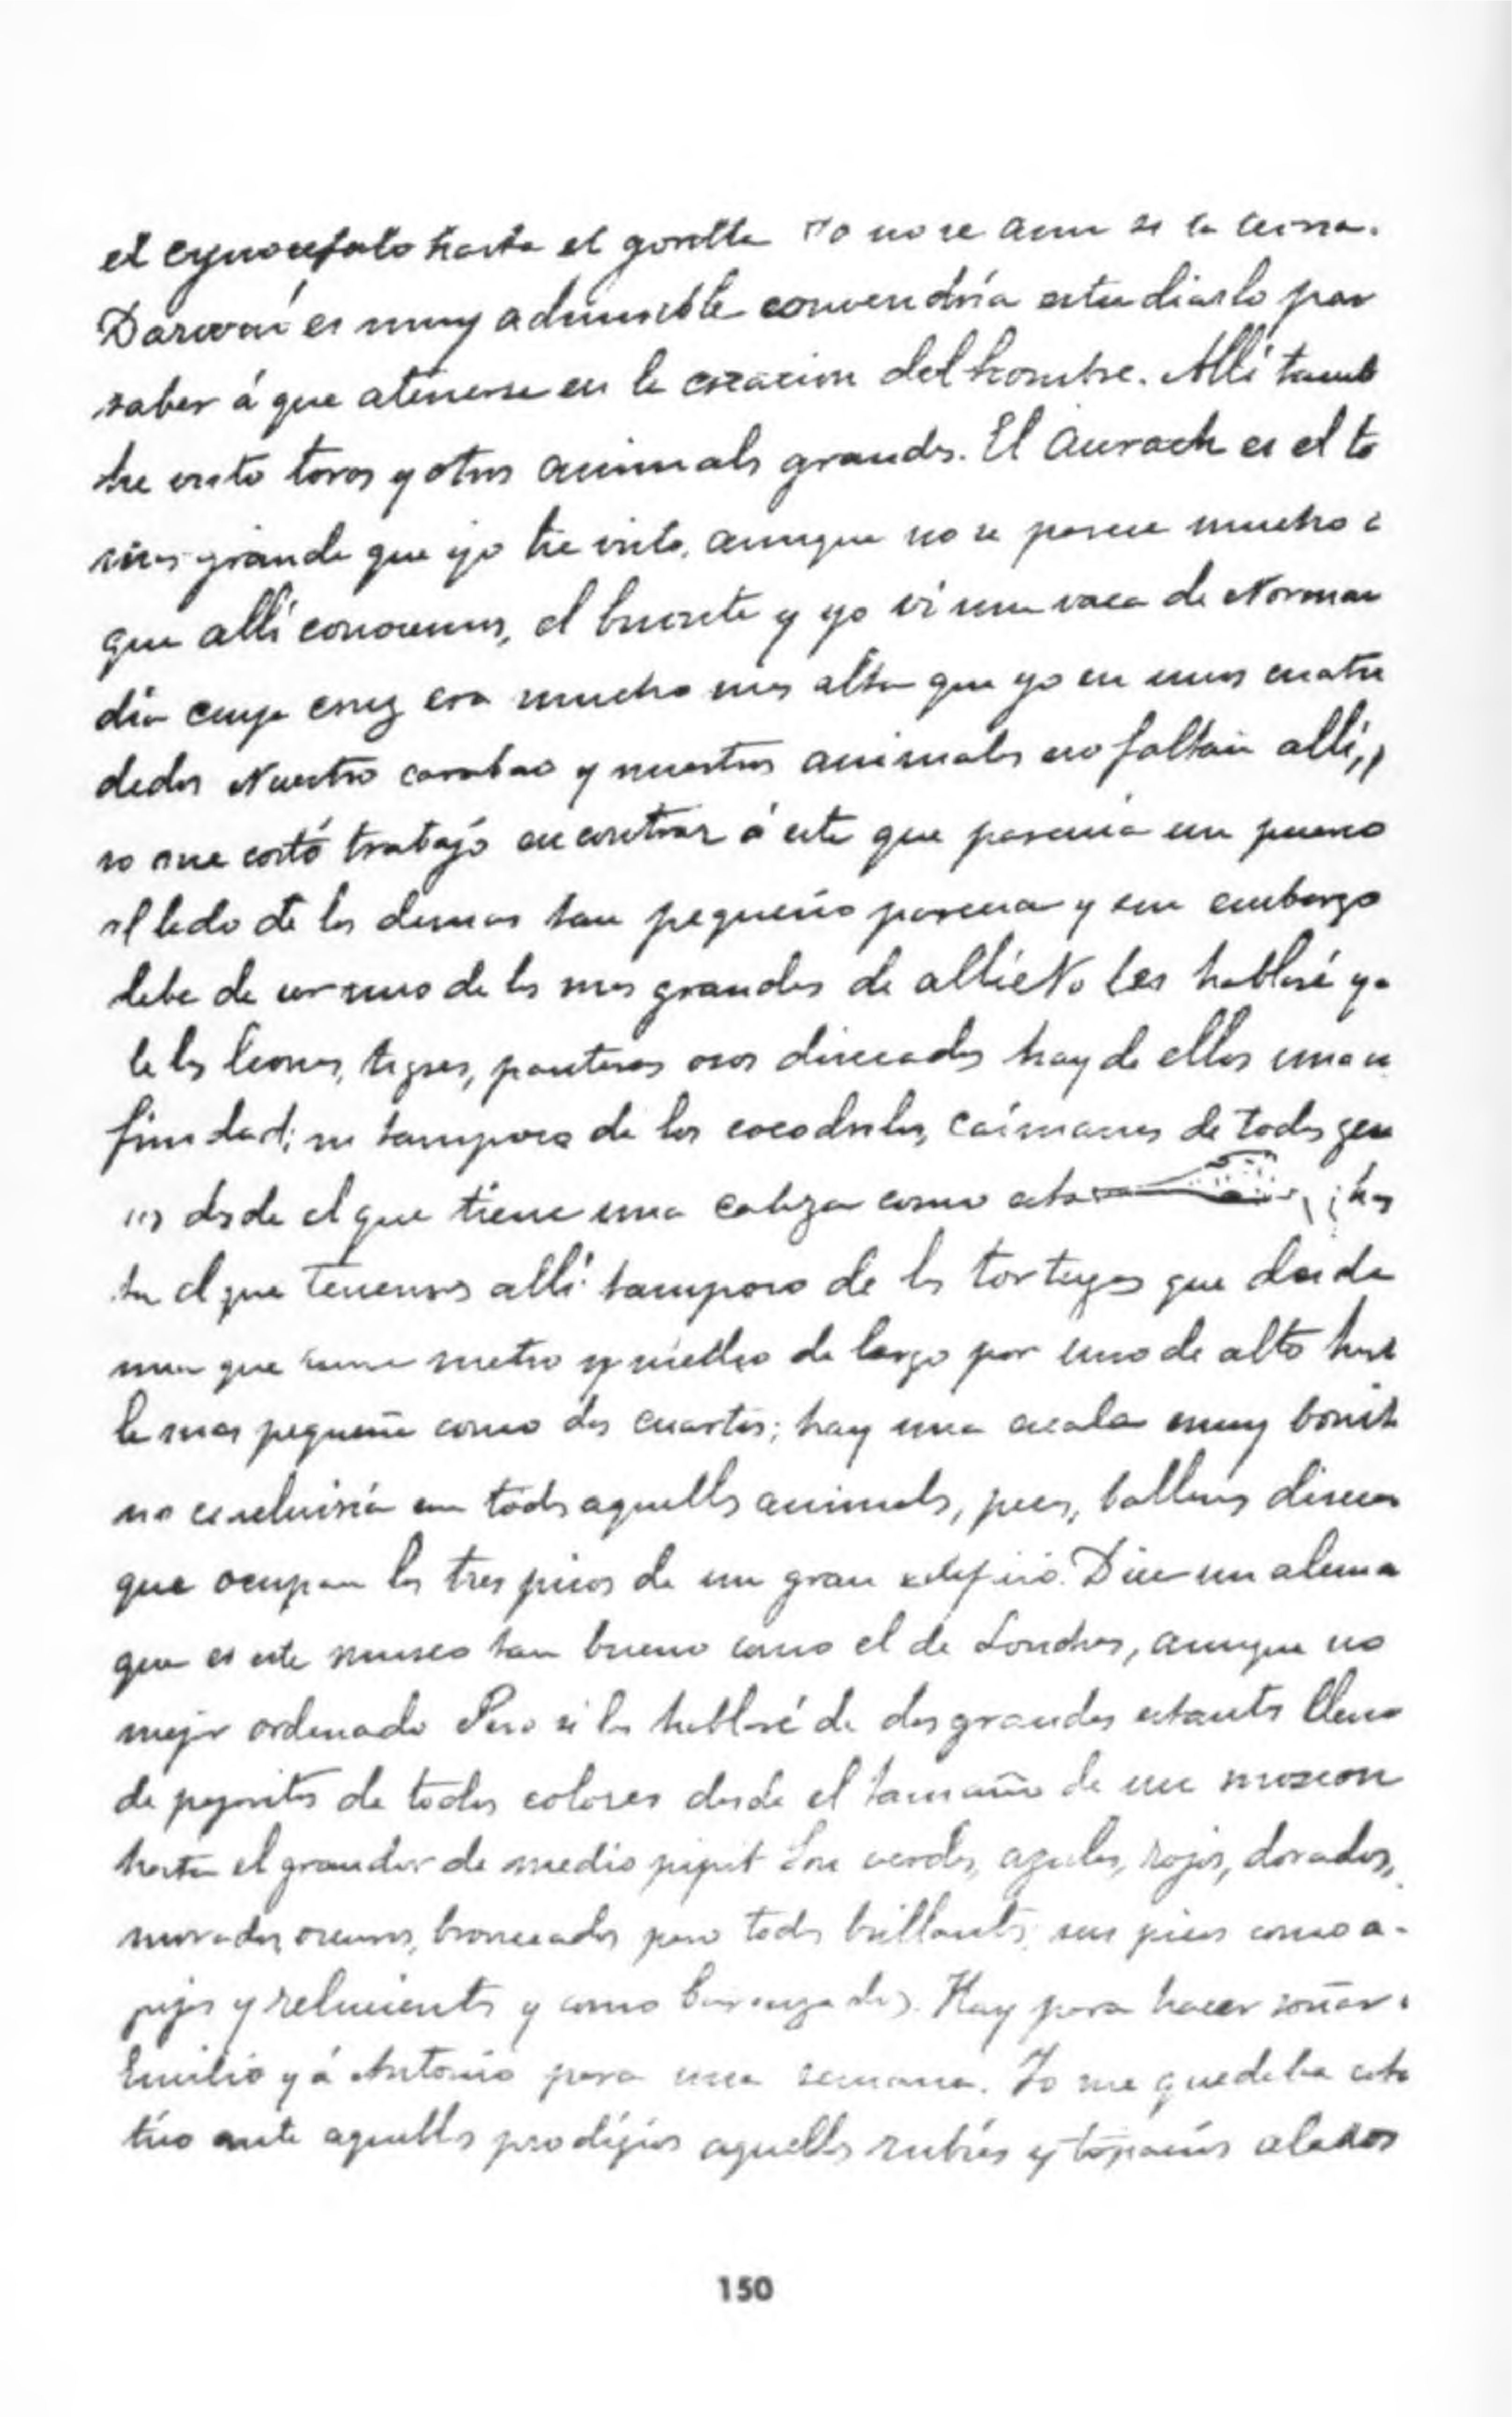 el cynocefalo hasta el gorilla Yo no se aun si la teoria.
Darwin es muy admisible convendría estudiarlo par
saber á que atenerse en la creacion del hombre. Allí tamb
he visto toros y otros animales grandes. El Aurock es el to
mas grande que yo he visto, aunque no se parece mucho a
que allí conocemos, el bisonte y yo vi una vaca de Norman
día cuya cruz era mucho mas alta que yo en unos cuatro
dedos Nuestro carabao y nuestros animales no faltan allí,
so me costó trabajo encontrar á este que parecia un puerco
al lado de los demas tan pequeño parecia y sin embargo
debe de ser uno de los mas grandes de allí No les hablaré ya
de los leones, tigres, panteras osos disecados hay de ellos una in
finidad; ni tampoco de los cocodrilos, caimanes de todos gen
ros desde el que tiene una cabeza como esta has
ta el que tenemos allí tampoco de las tortugas que desde
una que tiene metro y medio de largo por uno de alto hast
la mas pequeña como dos cuartos; hay una escala muy bonit
no concluiría con todos aquellos animales, peces, ballenas disecas
que ocupan los tres pisos de un gran edificio. Dice un alema
que es este museo tan bueno como el de Londres, aunque no
mejor ordenado Pero si les hablaré de dos grandes estantes lleno
de pajaritos de todos colores desde el tamaño de un moscon
hasta el grandor de medio pipit Son verdes, azules, rojos, dorados,
morados, oscuros, bronceados pero todos brillantes, sus picos como a-
gujas y relucientes y como barnizados. Hay para hacer soñar a
Emilio y á Antonio para una semana. Yo me quedaba esta
tico ante aquellos prodigios aquellos rubies y topacios alados
150